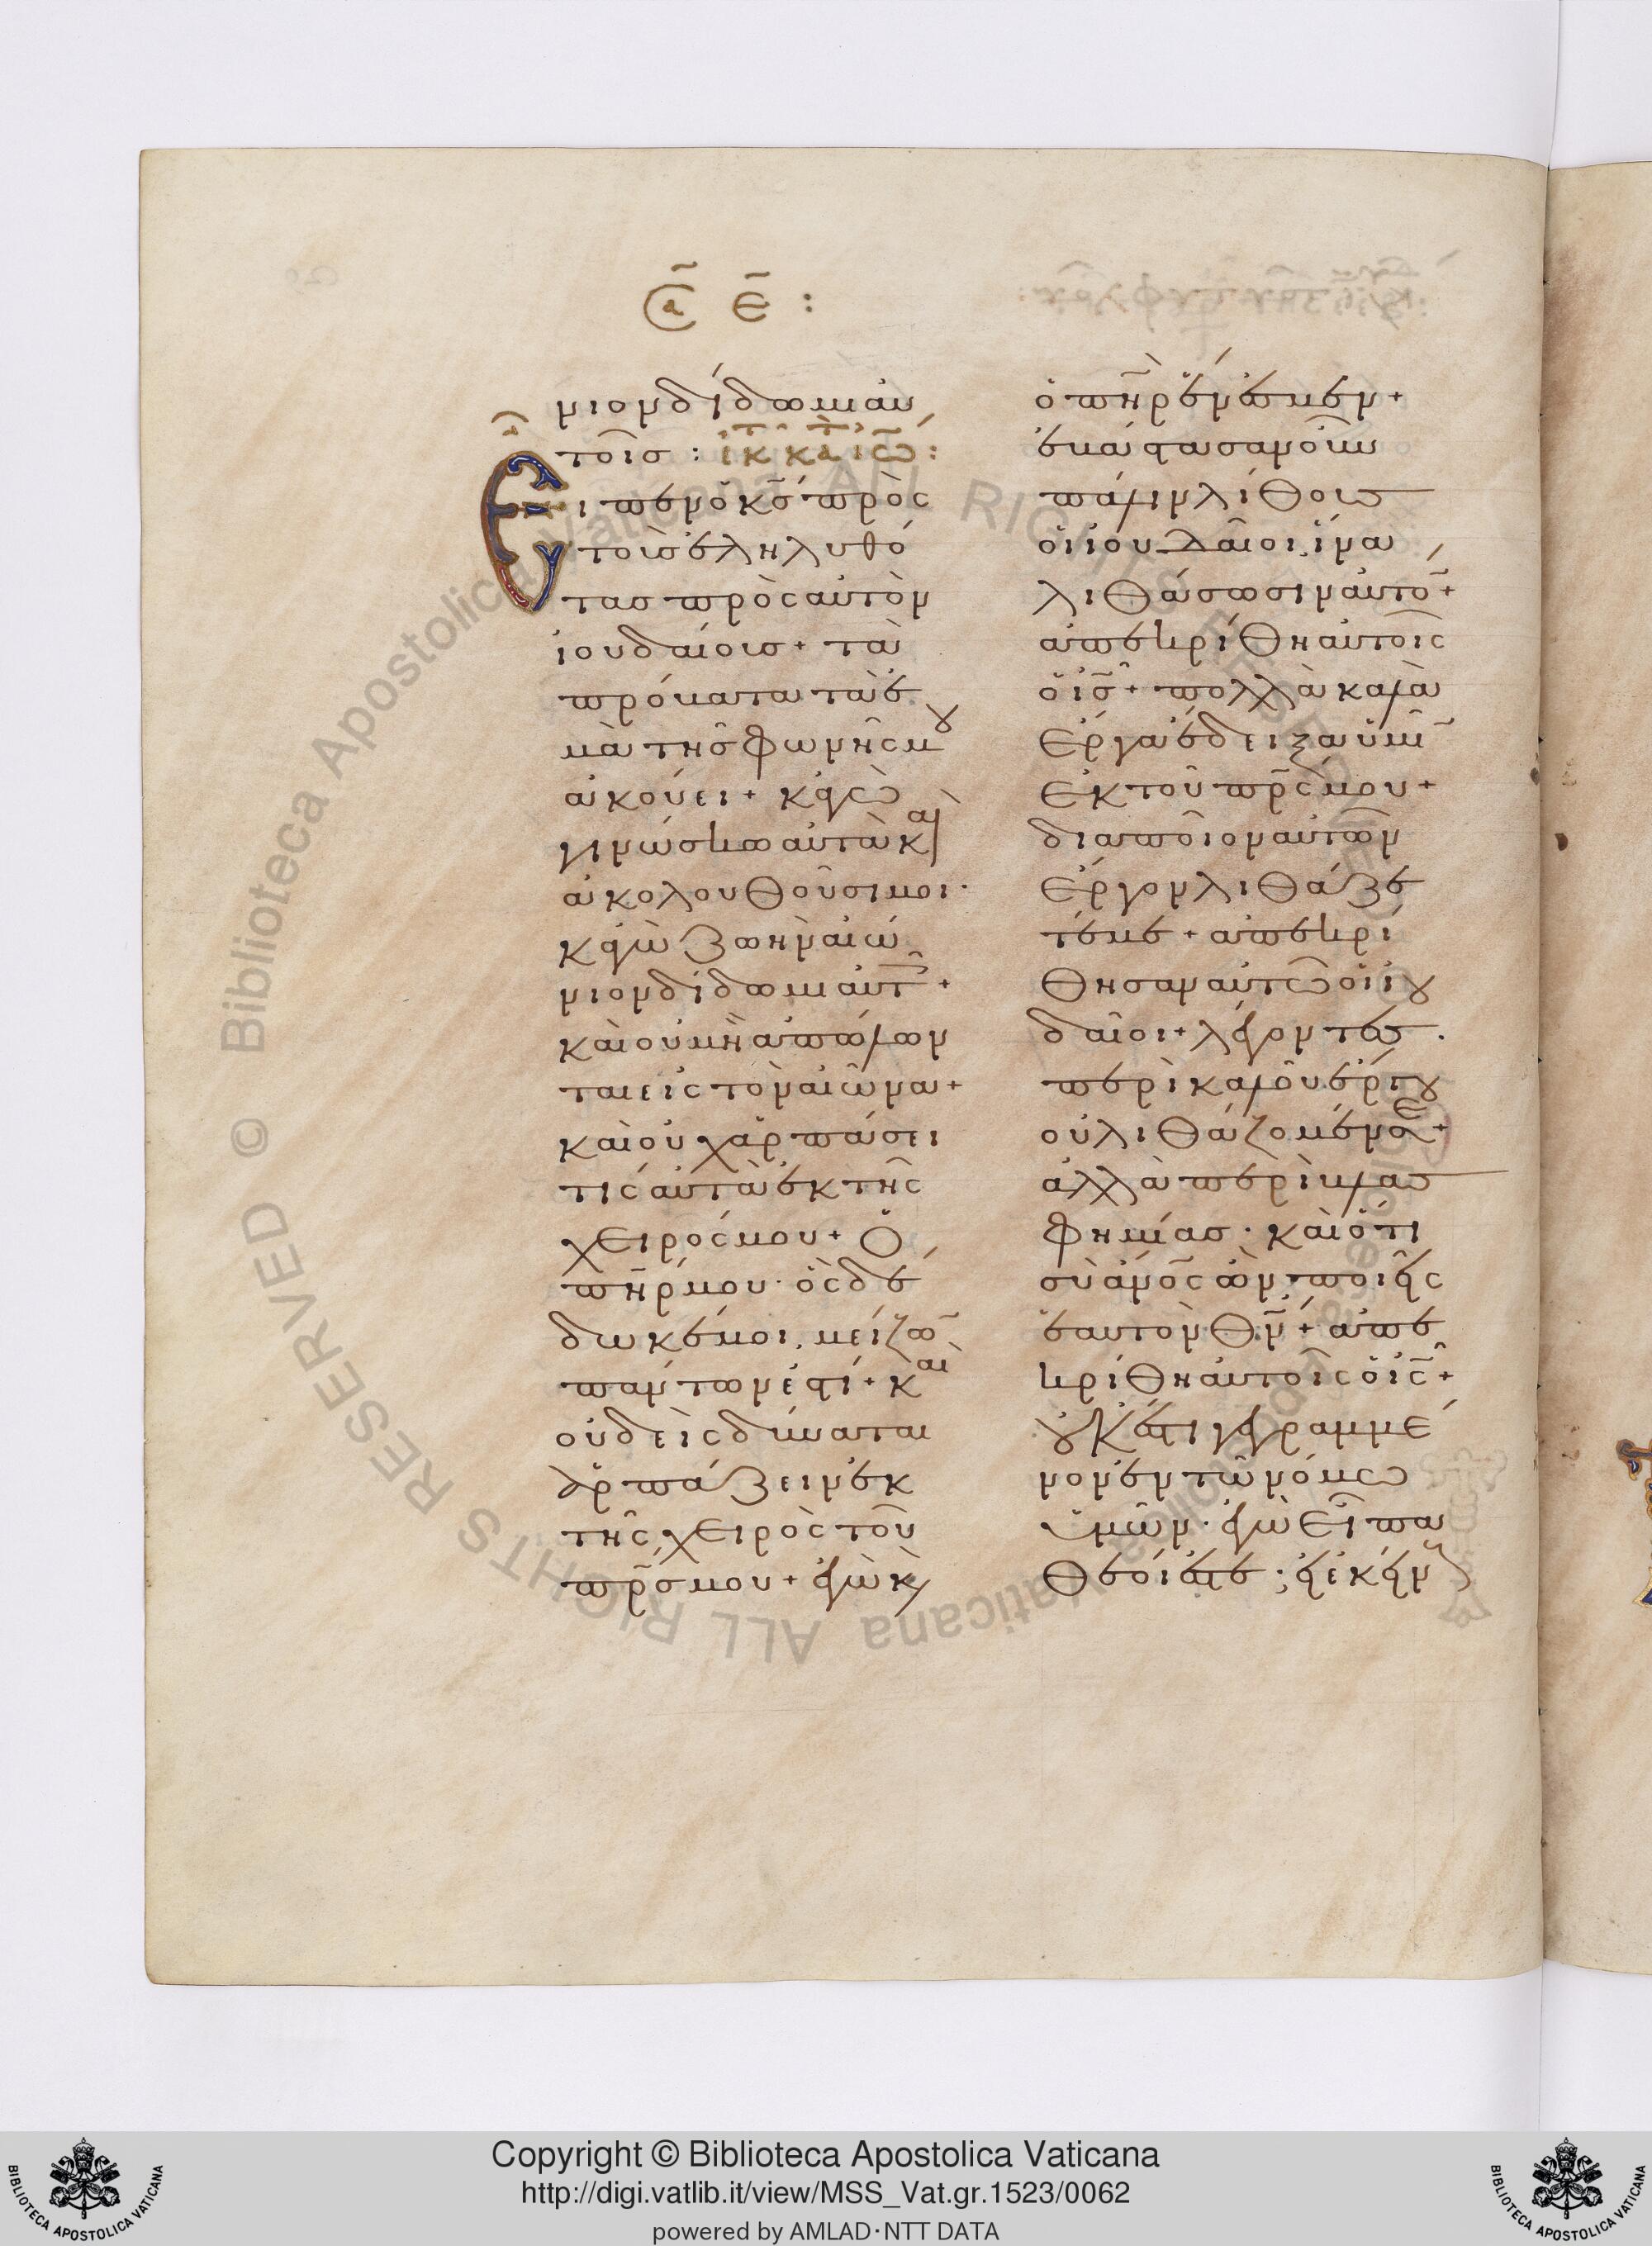 α ε :
νιον δίδωμι αὐ
τοῖσ : ἐκ τ κατὰ ἰω :
Εἶπεν ὁ κσ πρὸς
τοὺσ ἐληλυθό
τασ πρὸς αὐτὸν
ἰουδαίουσ + τὰ
πρόβατα τὰ ἐ
μὰ τῆσ φωνῆς μου
ἀκούει + κἀγὼ
γινώσκω αὐτὰ καὶ
ἀκολουθοῦσι μοι ·
κἀγὼ ζωὴν αἰώ
νιον δίδωμι αὐτοῖς +
καὶ οὐ μὴ ἀπόλων
ται εἰς τὸν αἰῶνα +
καὶ οὐχ ἁρπάσει
τίς αὐτὰ ἐκ τῆς
χειρός μου + Ὁ
πηρ μου · ὃς δέ
δωκέ μοι, μείζων
πάντων ἐστί + καὶ
οὐδεὶς δύναται
ἁρπάζειν ἐκ
τῆς χειρὸς τοῦ
πρσ μου + ἐγὼ κὲ
ὁ πηρ ἕν ἐσμεν +
ἐβάστασαν οὖν
πάλιν λίθουσ
οἱ ἰουδαῖοι, ἵνα
λιθάσωσιν αὐτόν +
ἀπεκρίθη αὐτοῖς
ὁ ισ + πολλὰ καλὰ
ἔργα ἔδειξα ὑμῖν
ἐκ τοῦ πρς μου +
διὰ ποῖον αὐτῶν
ἔργον λιθάζε
τέ με + ἀπεκρί
θησαν αὐτῶ οἱ ἰου
δαῖοι + λέγοντεσ ·
περὶ καλοῦ ἔργου
οὐ λιθάζομέν σε +
ἀλλὰ περὶ βλασ
φημίασ · καὶ ὅτι
σὺ ἄνος ὢν, ποιεῖς
ἑαυτὸν θν + ἀπε
κρίθη αὐτοῖς ὁ ις +
οὐκ ἔστι γεγραμμέ
νον ἐν τῶ νόμω
ὑμῶν · ἐγὼ εἶπα
θεοί ἐστε ; εἰ ἐκείν
Copyright © Biblioteca Apostolica Vaticana
http://digi.vatlib.it/view/MSS_Vat.gr.1523/0062
powered by AMLAD·NTT DATA